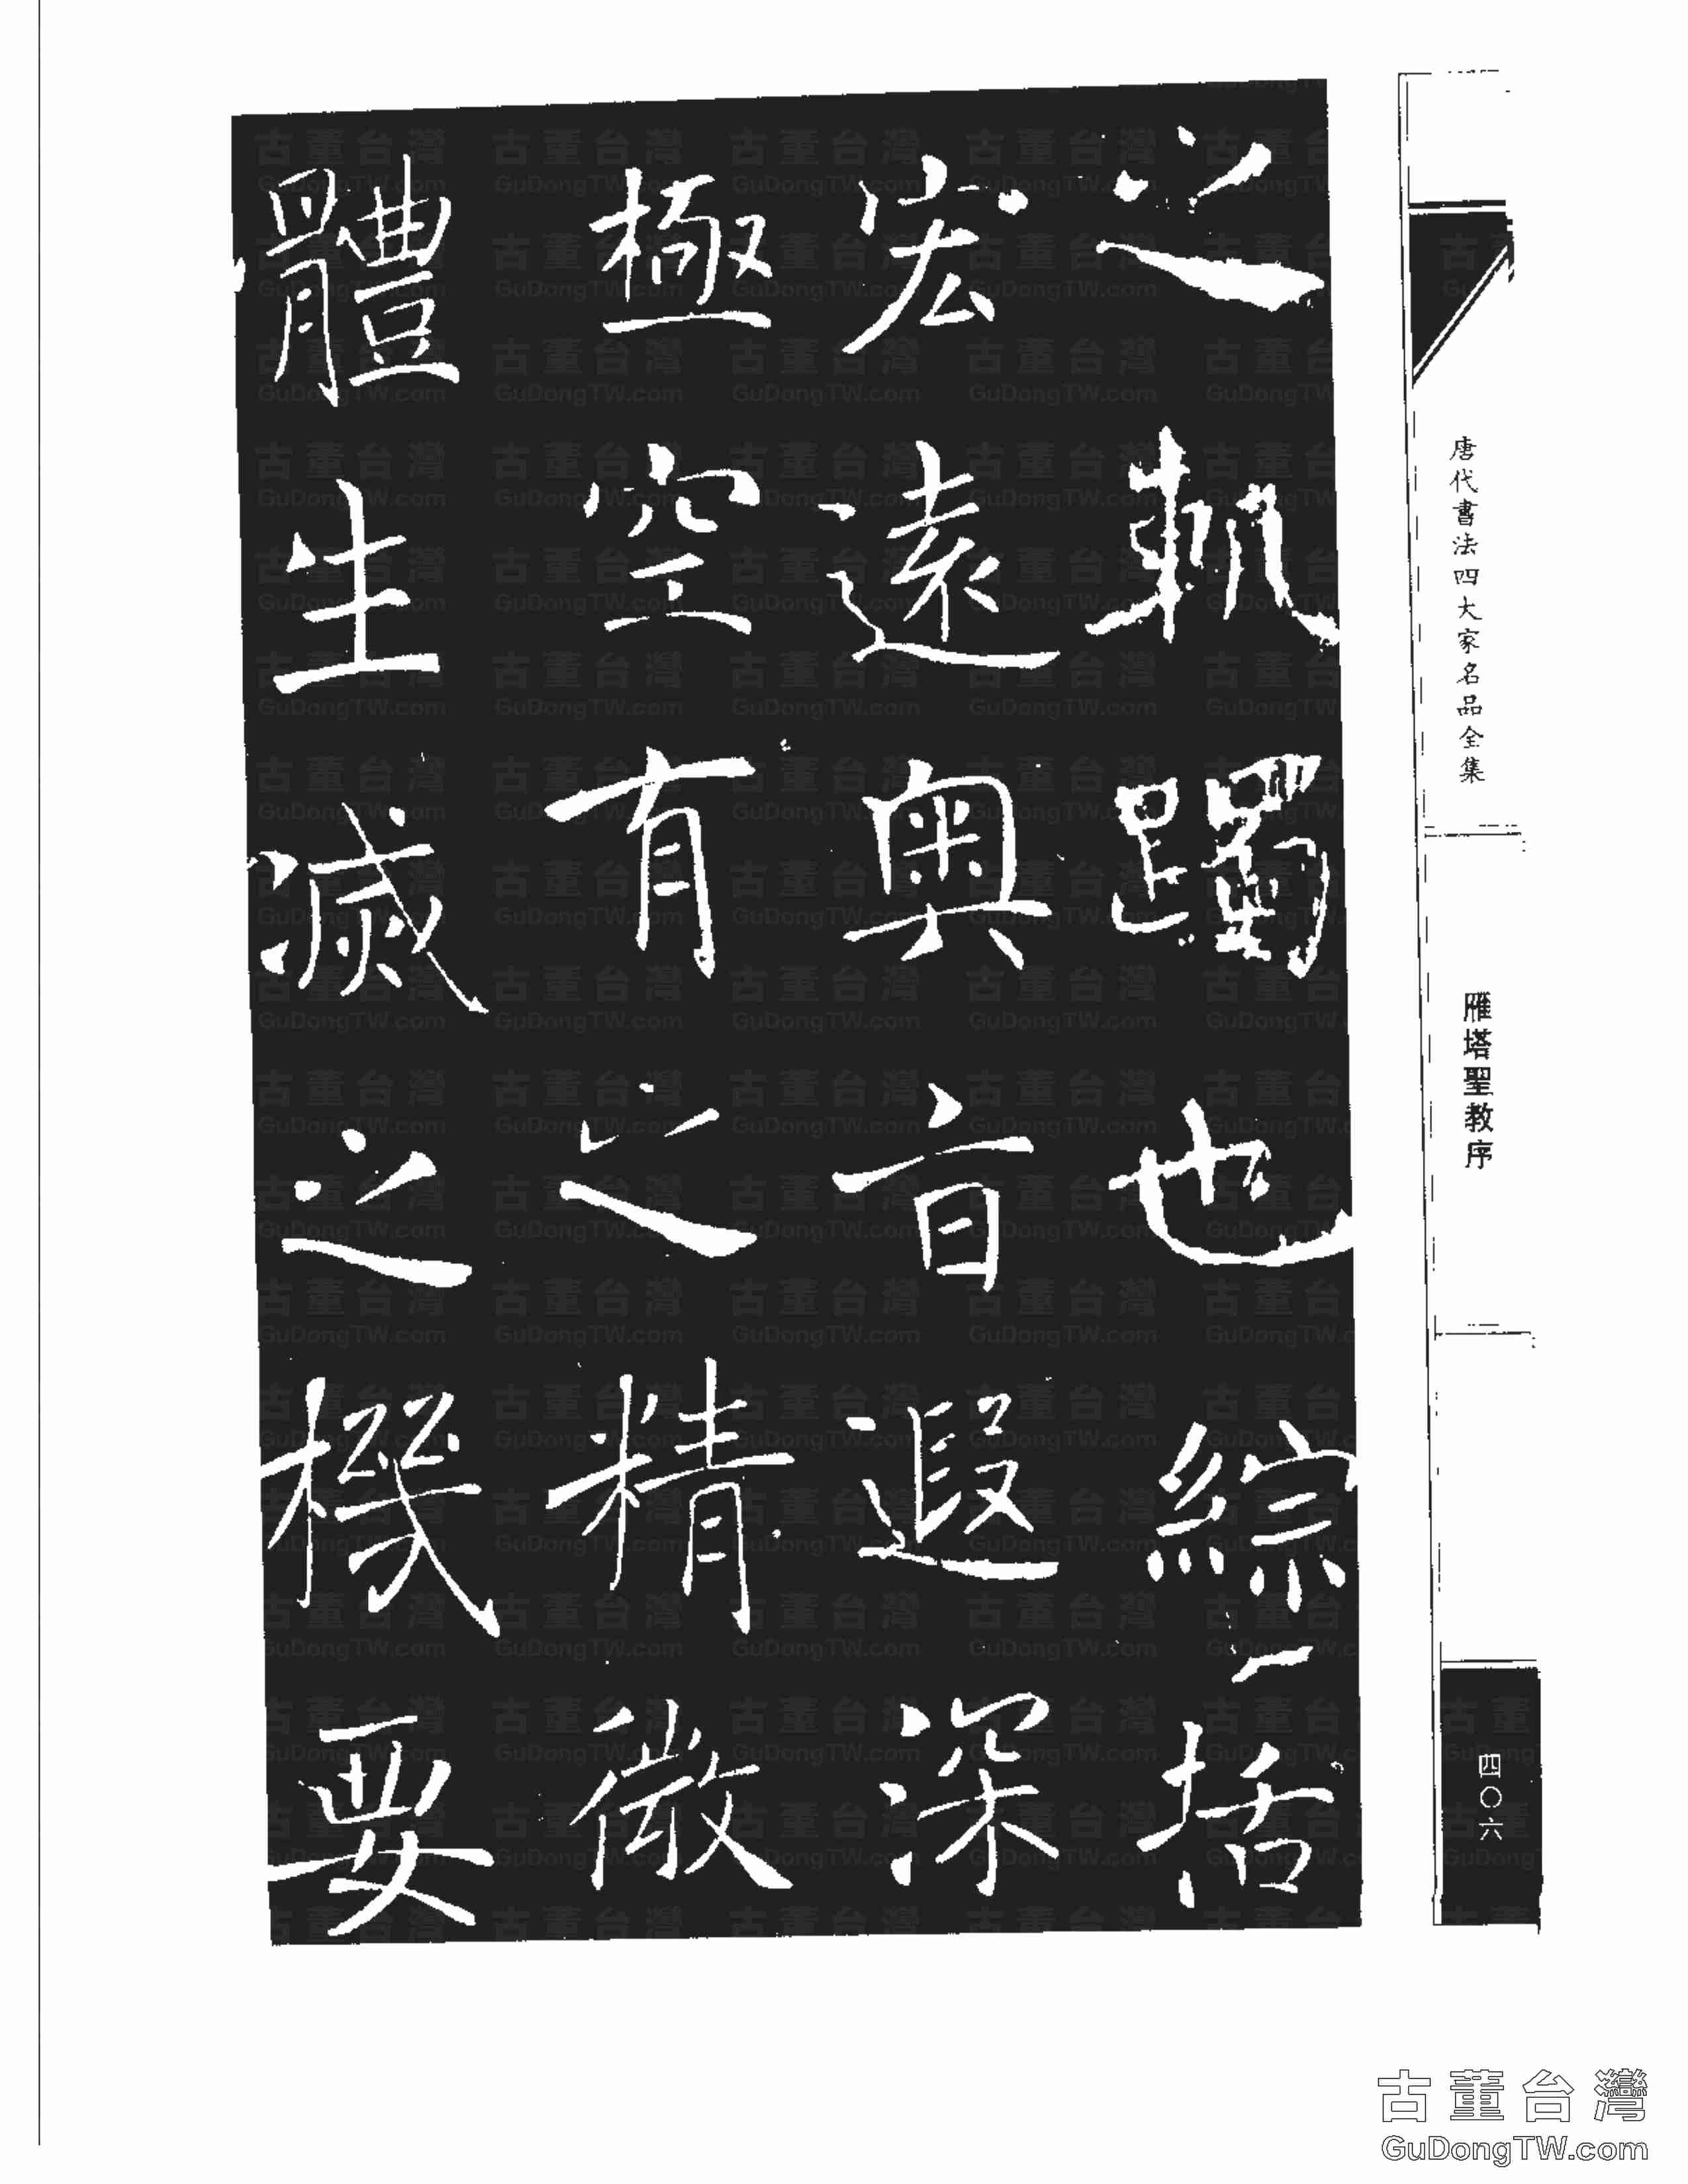 唐代書法四大家名品全集
雁塔聖教序
四〇六
之軌躅也綜括
宏遠奥旨遐深
極空有之精微
體生滅之機要
古董台灣
GuDongTW.com